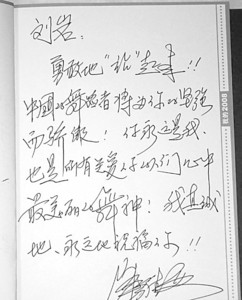 刘岩：
勇敢地“站”起来！！
中国的舞蹈者将为你的坚强
而骄傲！你永远是我、
也是所有关爱你的人们心中
最美丽的舞神！我真诚
地、永远地祝福你！！